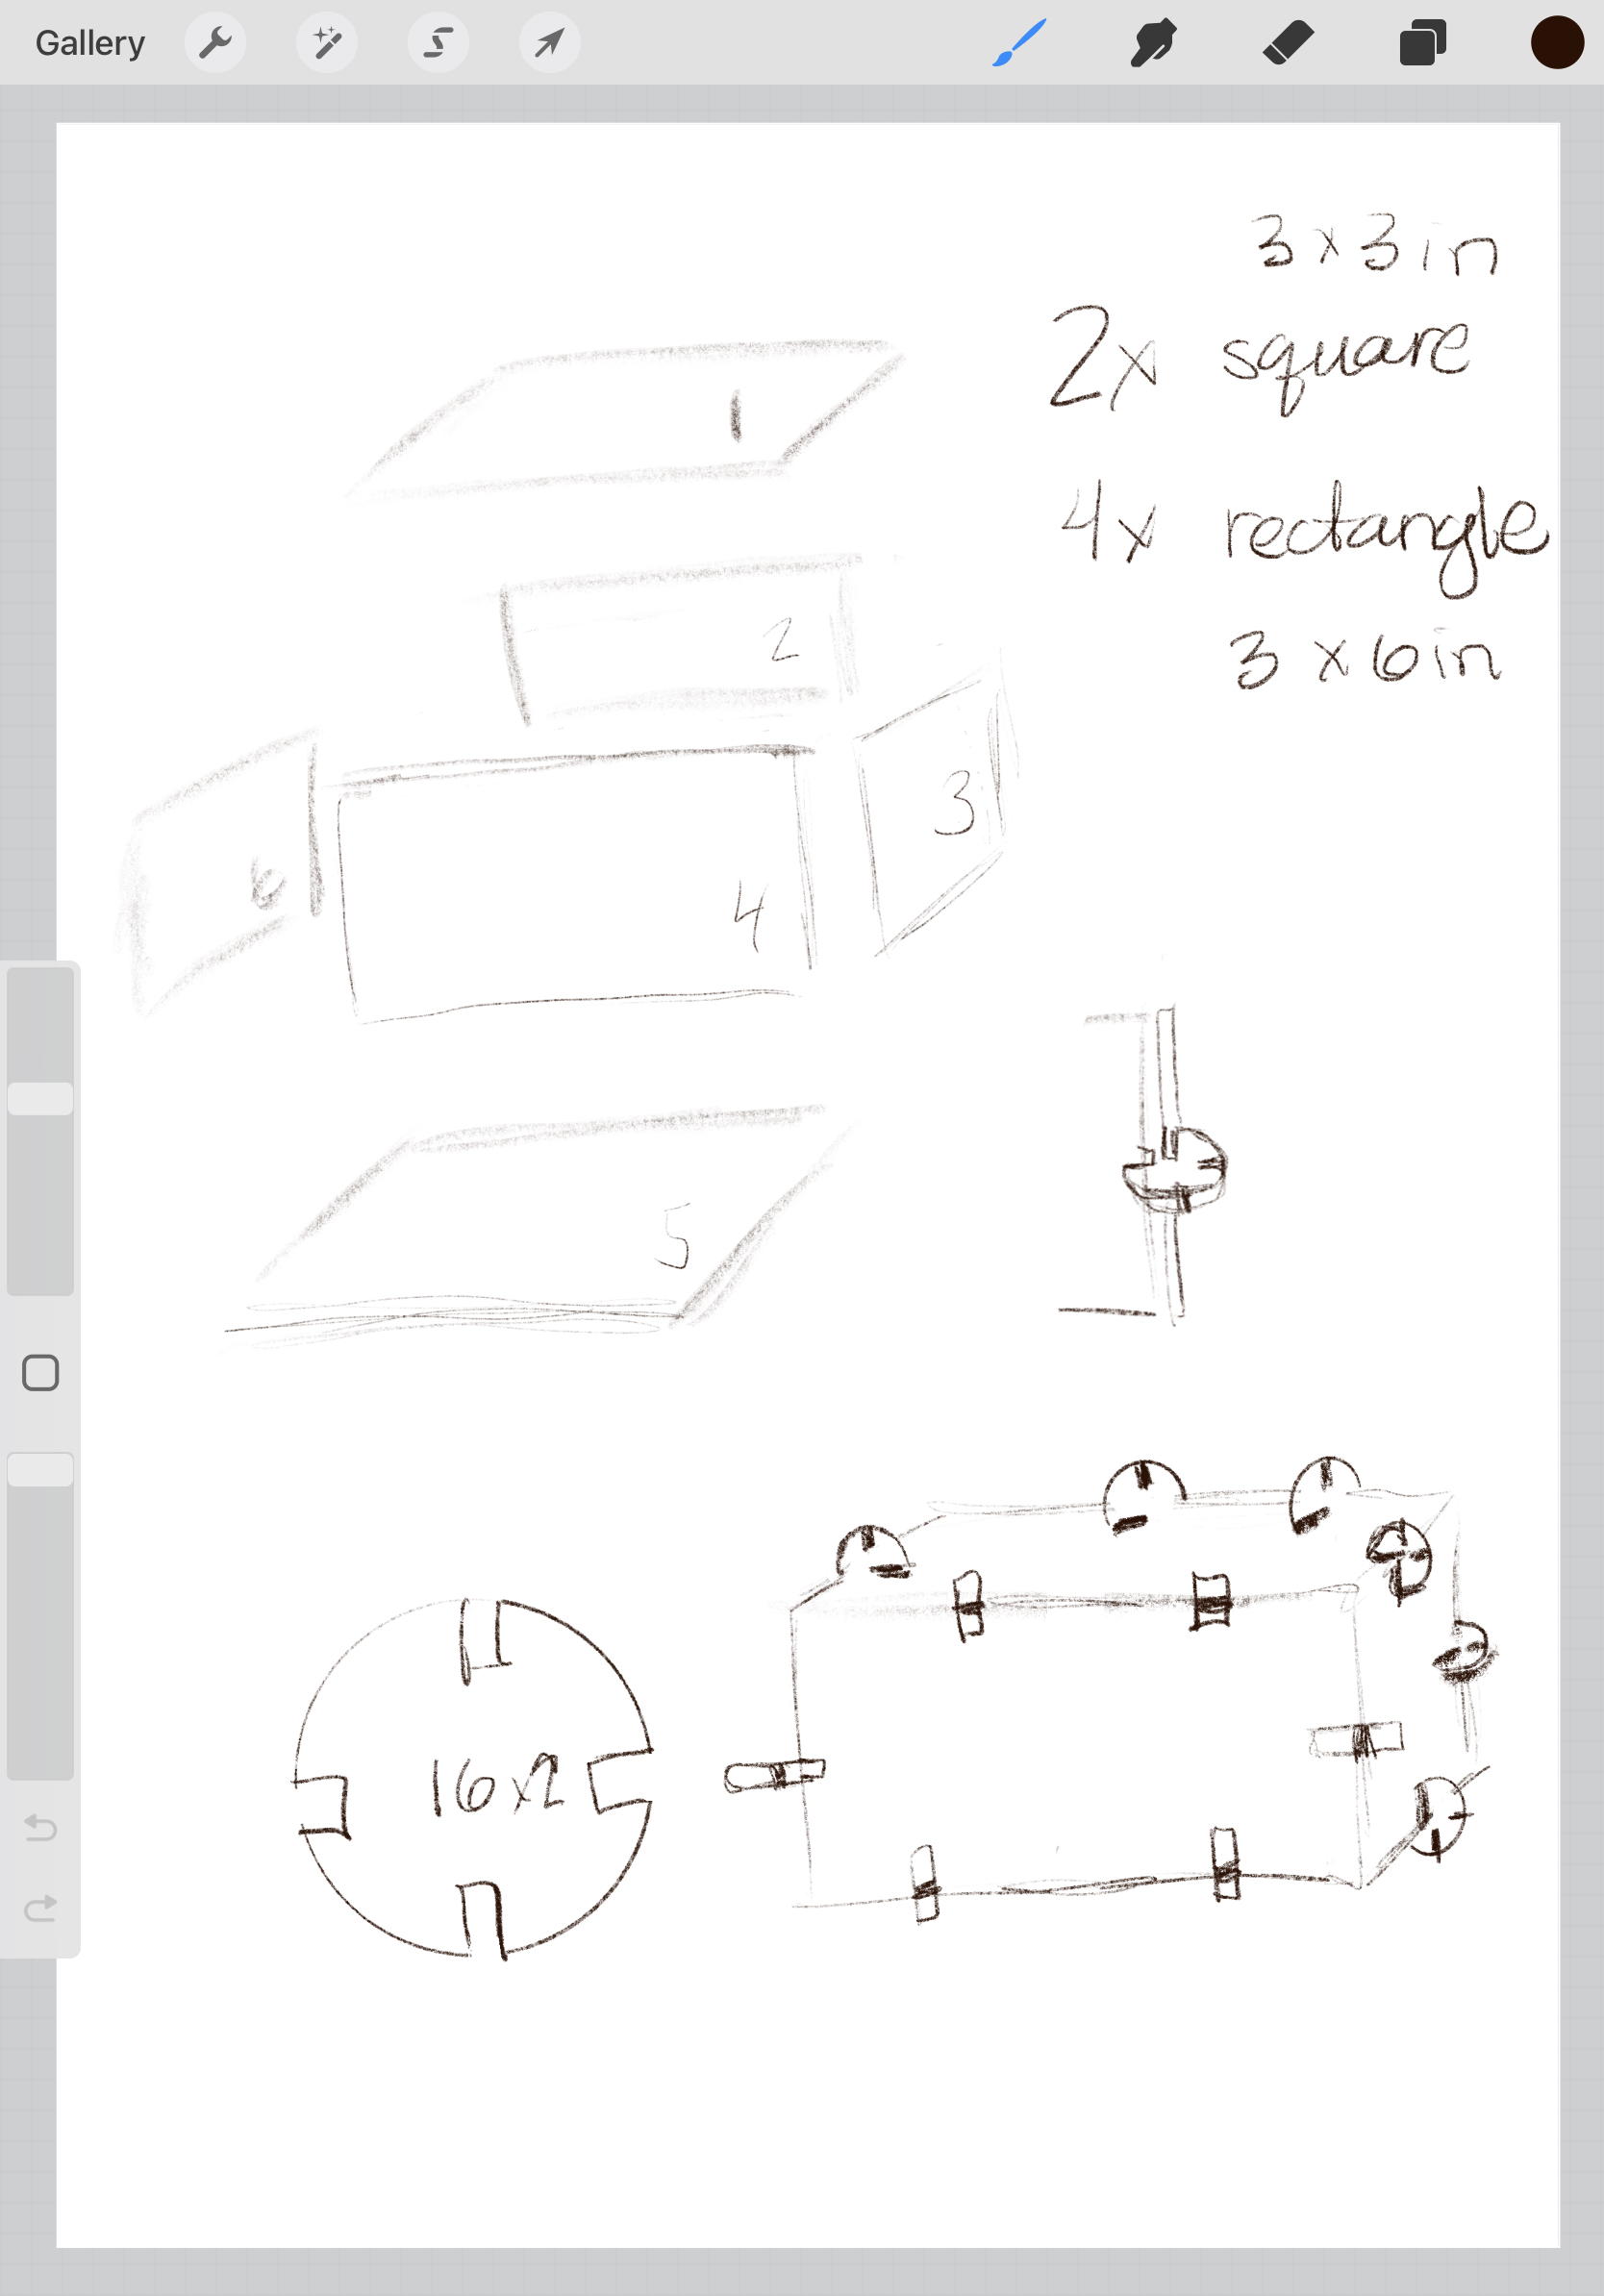 Gallery
3 x 3 in
2x square
4x rectangle
3 x 6 in
1
2
3
6
4
5
16 x 2